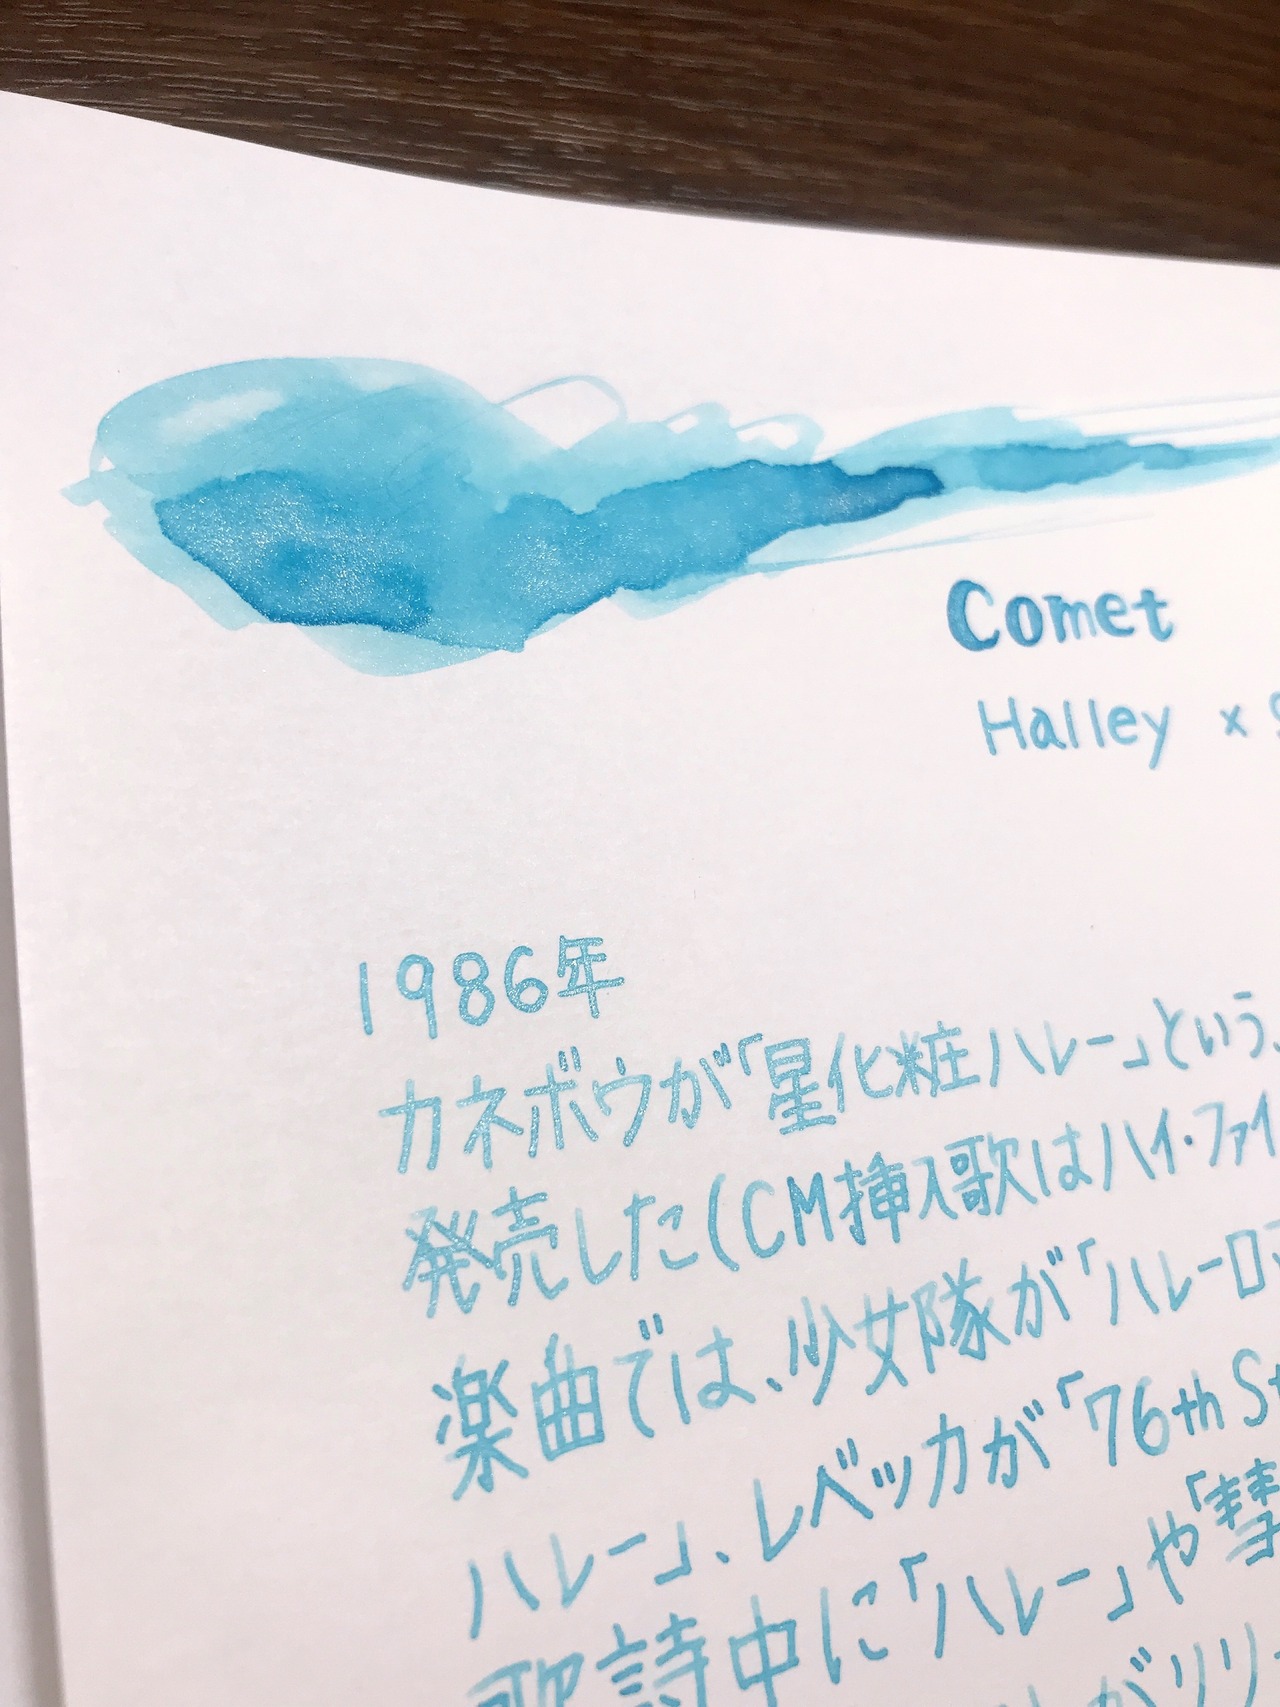 Comet
Halley ×
1986年
カネボウが「星化粧ハレー」という、
発売した(CM挿入歌はハイ・ファイ
楽曲では、少女隊が「ハレーロマ
ハレー」、レベッカが「76th St
歌詩中に「ハレー」や「彗
がリリ